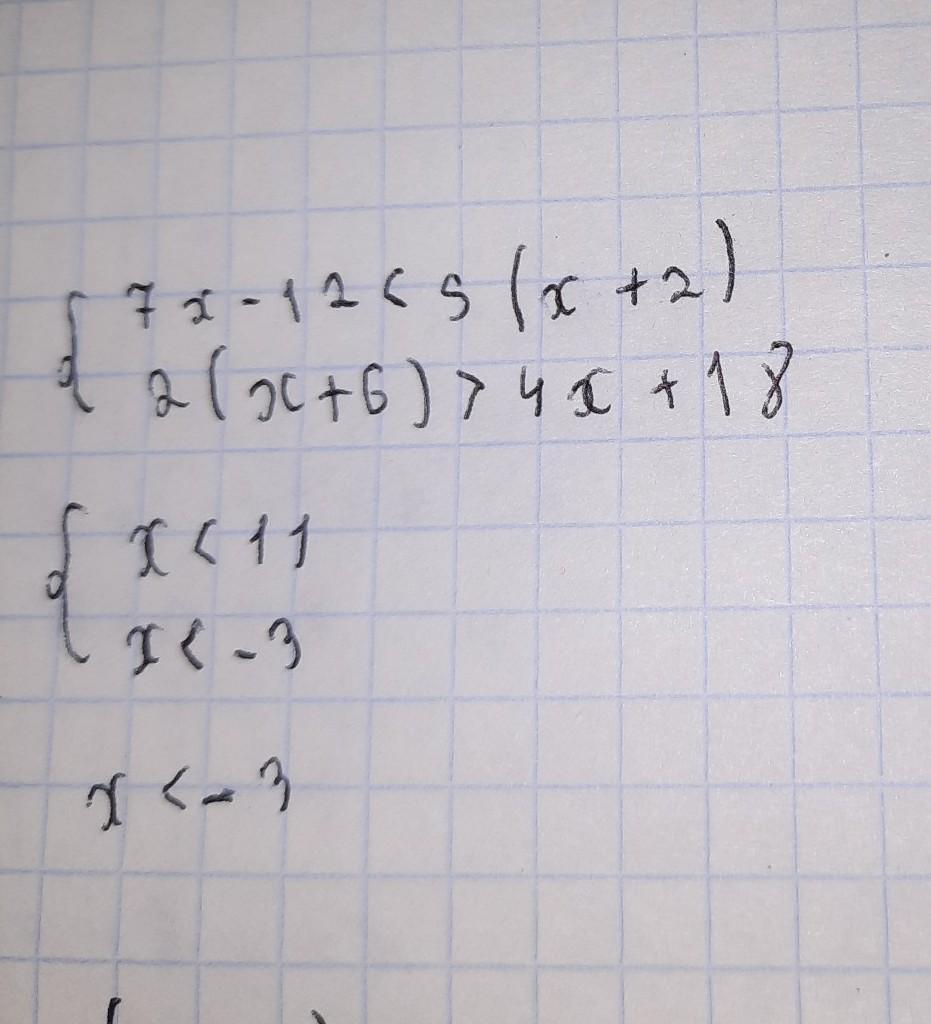 { 7x - 12 < 5 (x + 2)
2(x + 6) > 4x + 18
{ x < 11
x < -3
x < -3